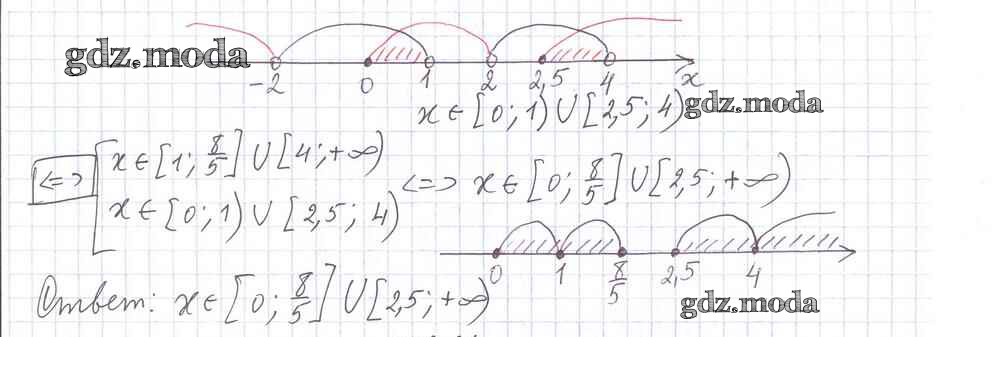 gdz.moda
-2 0 1 2 2,5 4 x
x ∈ [0; 1) ∪ [2,5; 4)
gdz.moda
x ∈ [1; 8/5] ∪ [4; +∞)
<=> <=> x ∈ [0; 8/5] ∪ [2,5; +∞)
x ∈ [0; 1) ∪ [2,5; 4)
0 1 8/5 2,5 4
Ответ: x ∈ [0; 8/5] ∪ [2,5; +∞)
gdz.moda